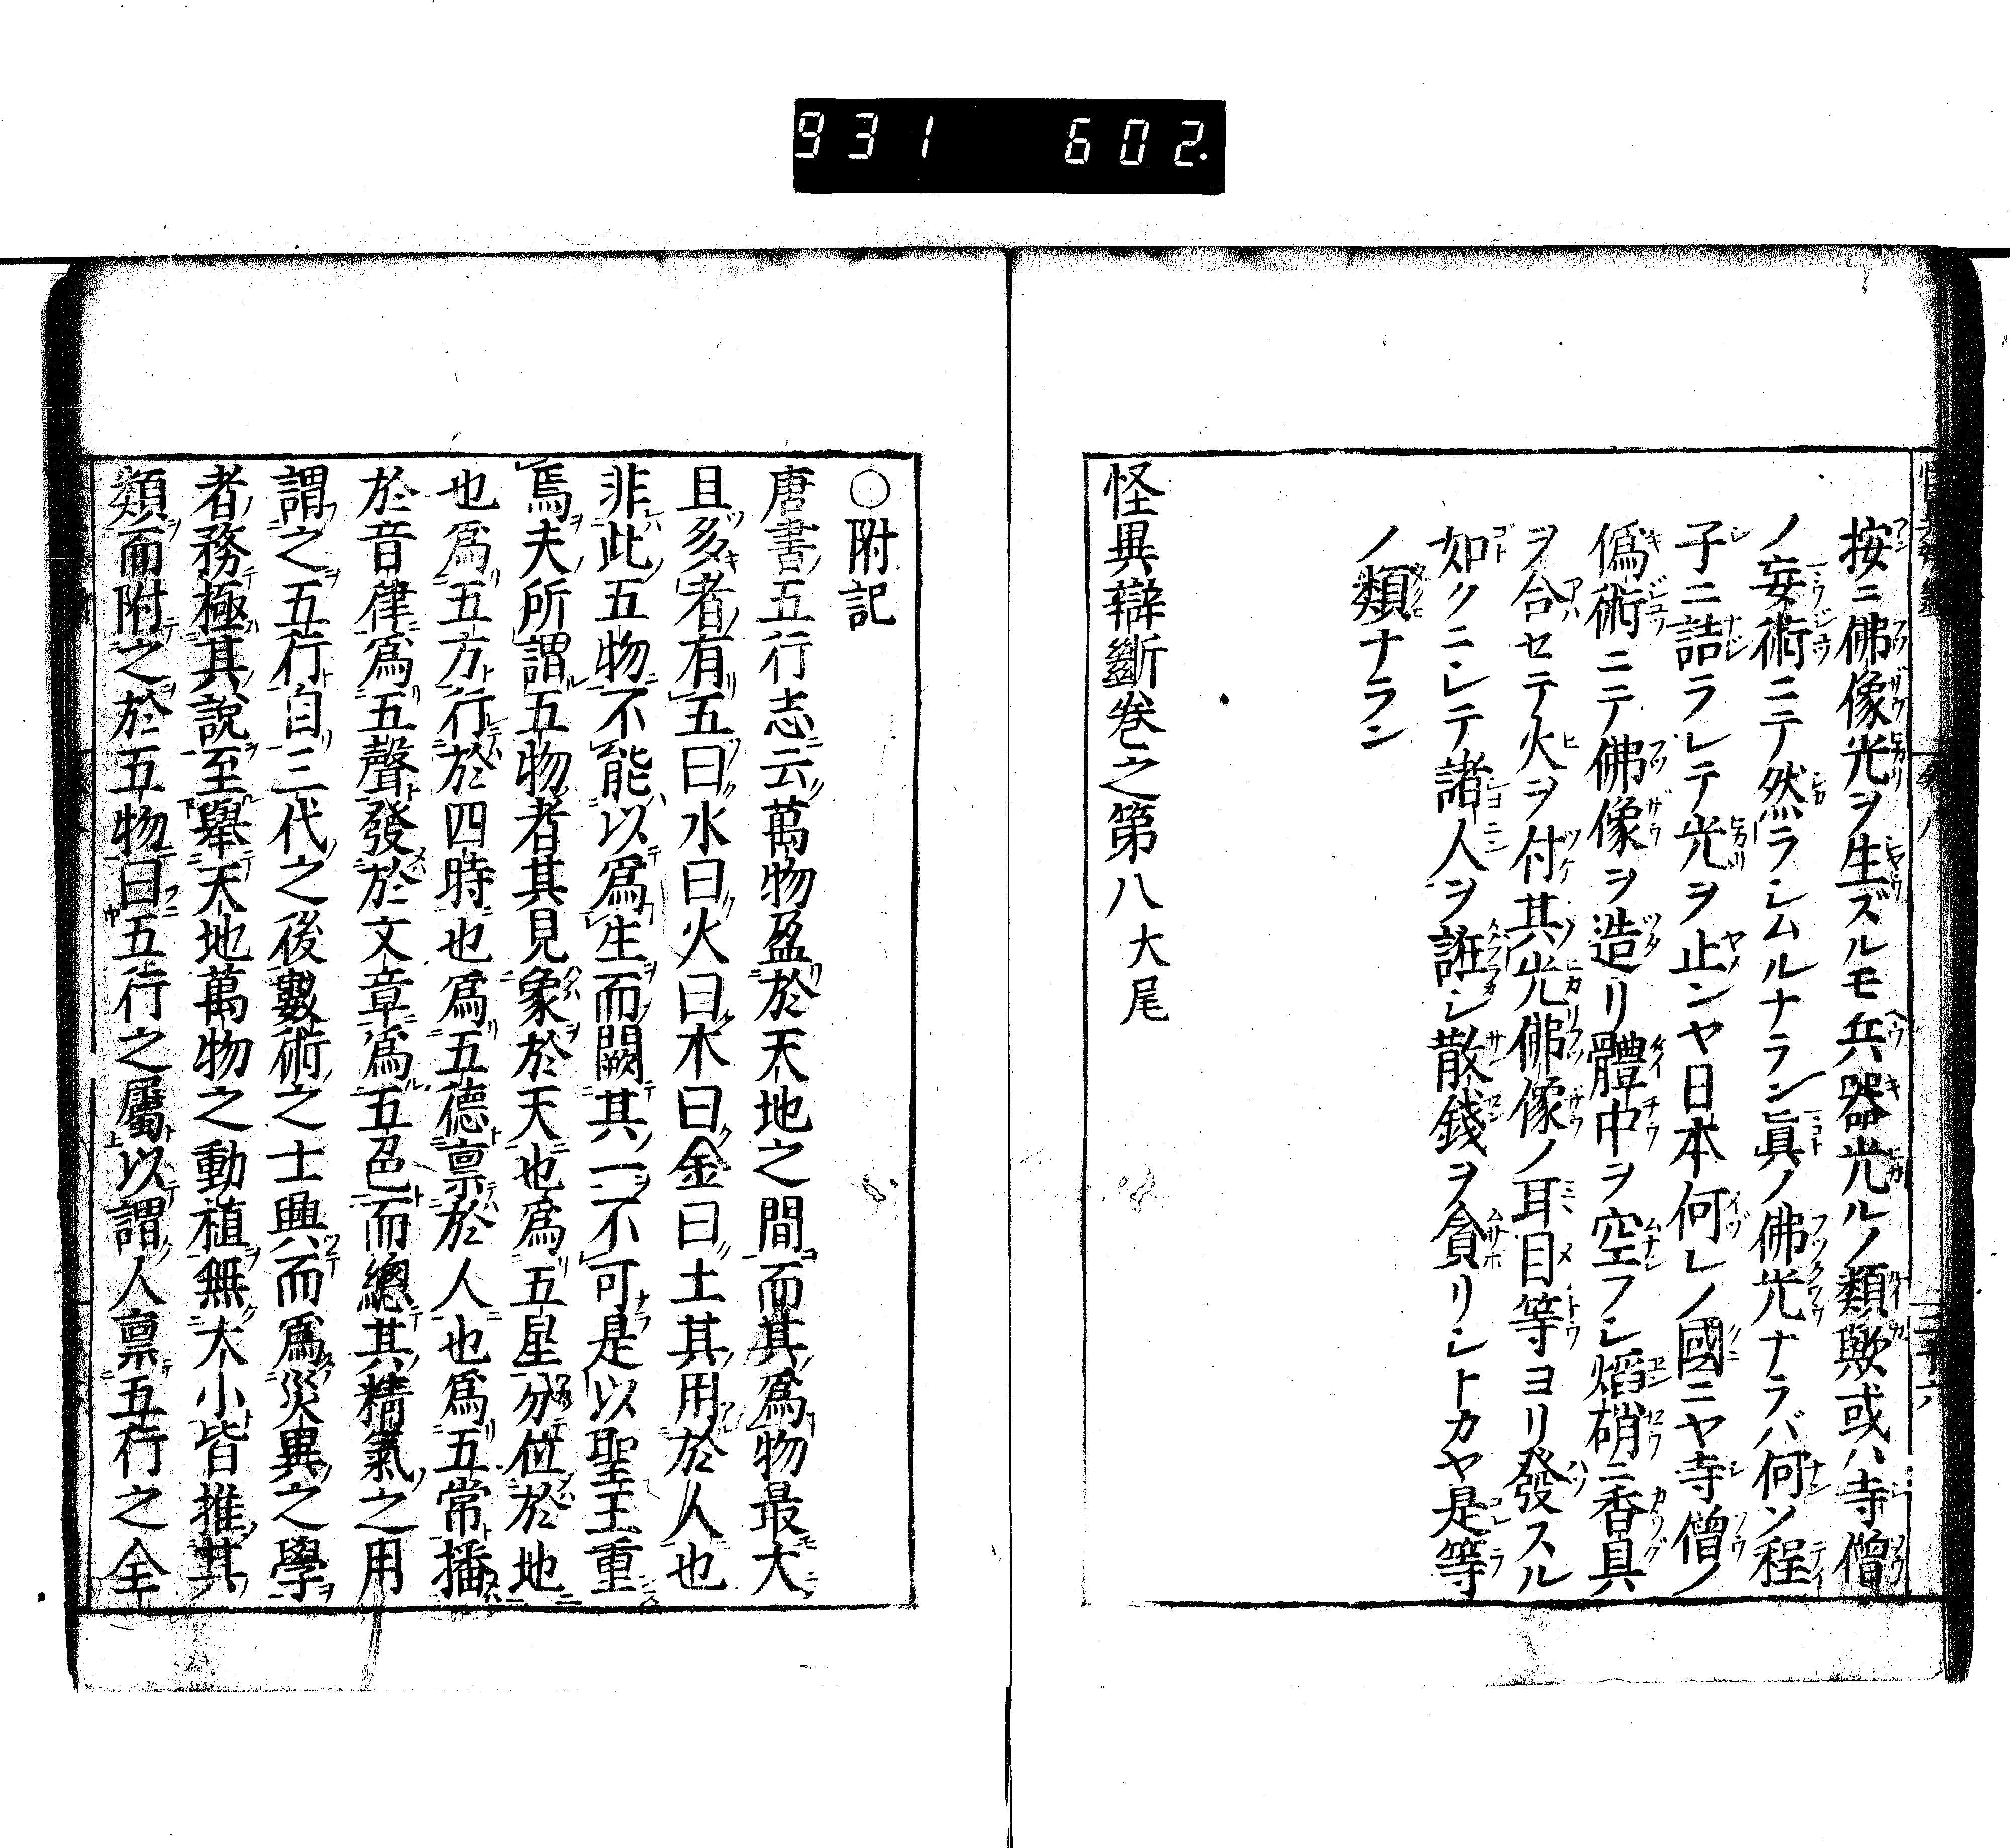 931 602.
按ニ佛像光ヲ生ズルモ兵器光ルノ類歟或ハ寺僧
ノ妄術ニテ然ラシムルナラン眞ノ佛光ナラバ何ソ程
子ニ詰ラレテ光ヲ止ンヤ日本何レノ國ニヤ寺僧ノ
僞術ニテ佛像ヲ造リ體中ヲ空フシ熖硝ニ香具
ヲ合セテ火ヲ付其光佛像ノ耳目等ヨリ發スル
如クニシテ諸人ヲ誑シ散錢ヲ貪リシトカヤ是等
ノ類ナラン
怪異辯斷巻之第八大尾
○附記
唐書五行志云萬物盈於天地之間而其爲物最大
且多者有五曰水曰火曰木曰金曰土其用於人也
非此五物不能以爲生而闕其一不可是以聖王重
焉夫所謂五物者其見象於天也爲五星分位於地
也爲五方行於四時也爲五德禀於人也爲五常播
於音律爲五聲發於文章爲五色而總其精氣之用
謂之五行自三代之後數術之士興而爲災異之學
者務極其說至舉天地萬物之動植無大小皆推其
類而附之於五物曰五行之屬以謂人禀五行之全